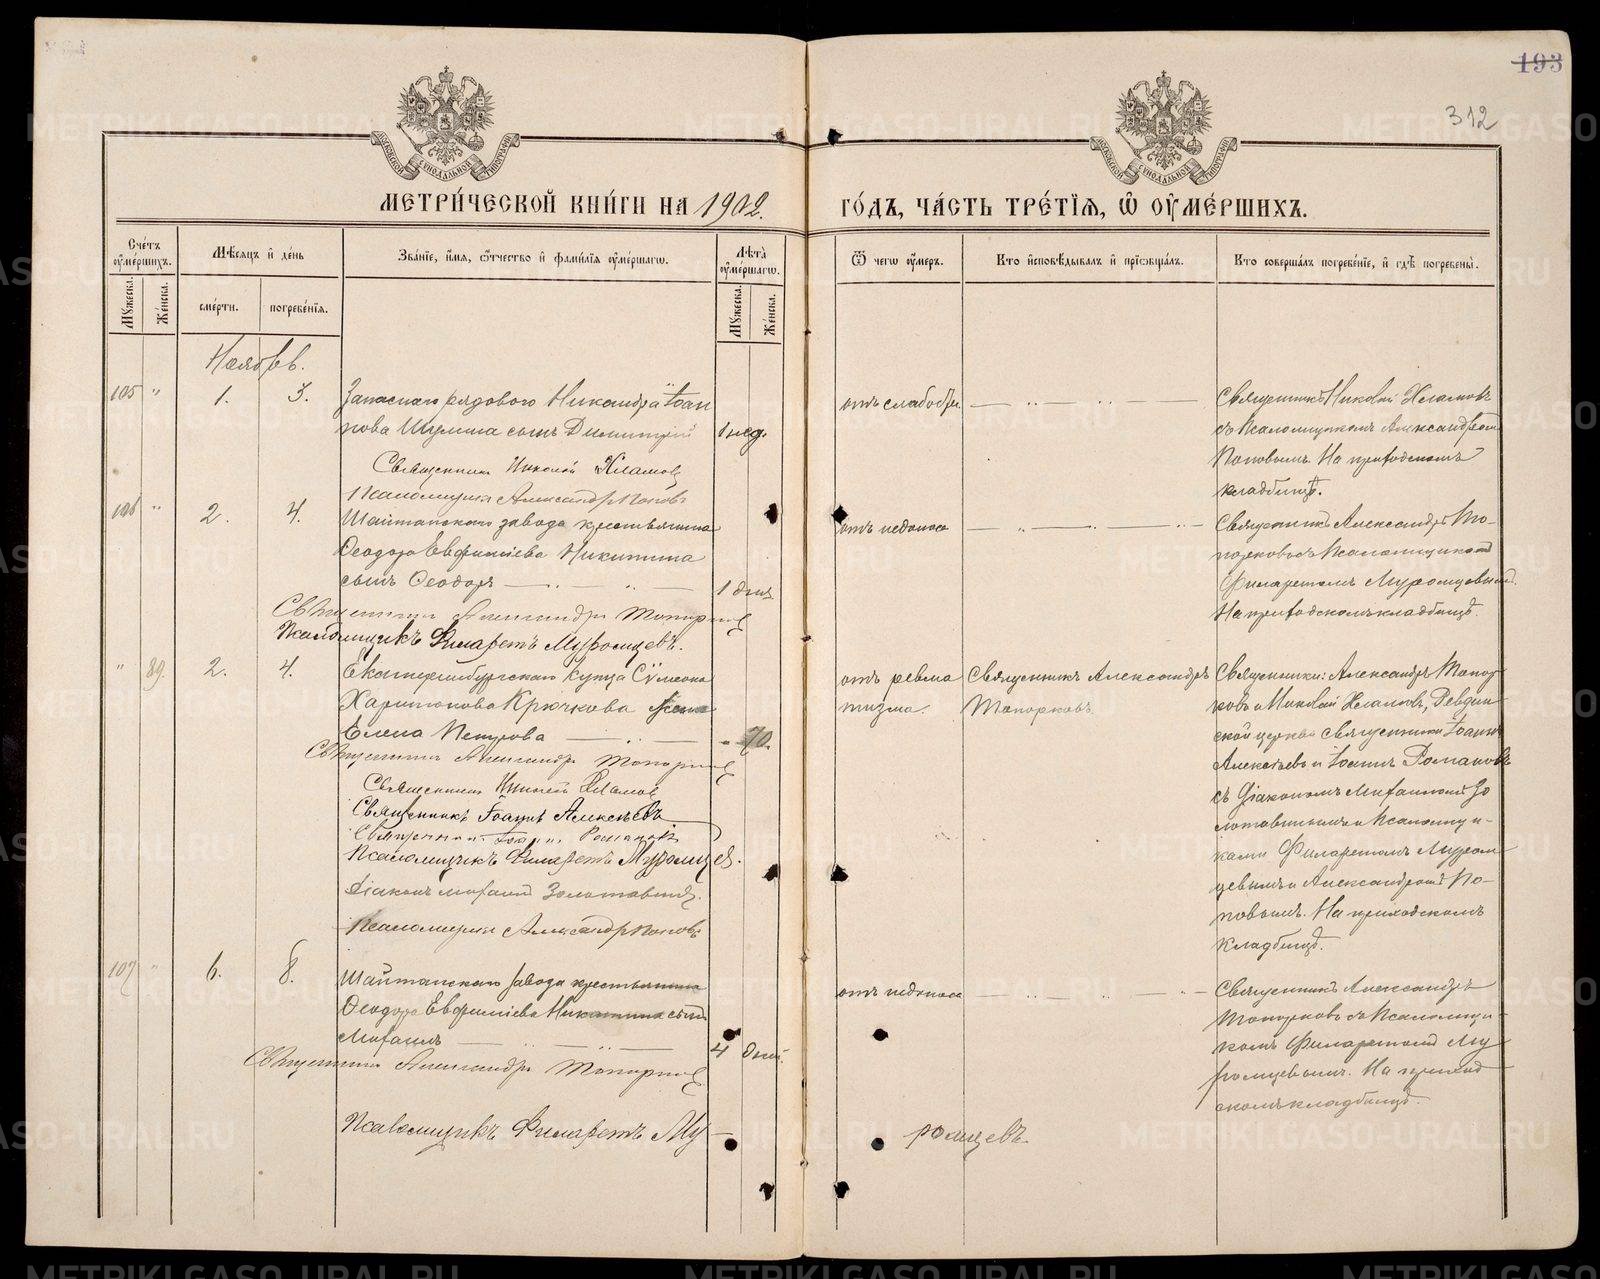 193
312
МОСКОВСКОЙ СѴНОДАЛЬНОЙ ТИПОГРАФІИ
МОСКОВСКОЙ СѴНОДАЛЬНОЙ ТИПОГРАФІИ
МЕТРИ́ЧЕСКОЙ КНИ́ГИ НА 1902.
ГО́ДЪ, ЧА́СТЬ ТРЕ́ТІЯ, Ѡ ОУМЕ́РШИХЪ.
Сче́тъ оуме́ршихъ.
Мꙋжеска.
Же́нска.
Мѣ́сяцъ и де́нь
сме́рти.
погребе́нїя.
Зва́нїе, и́мя, ѻ́тчество и фами́лїя оуме́ршагѡ.
Лѣта̀ оуме́ршагѡ.
Мꙋжеска.
Же́нска.
Ѿ чегѡ оу́меръ.
Кто исповѣ́дывалъ и прїѡбща́лъ.
Кто соверша́лъ погребе́нїе, и гдѣ̀ погребены̀.
Ноябрь.
105 " 1. 3. Запаснаго рядового Никандра Іоан
нова Шулина сынъ Димитрій 1 нед.
Священникъ Николай Хламовъ
Псаломщикъ Александръ Поповъ
отъ слабости.
Священникъ Николай Хламовъ
съ Псаломщикомъ Александромъ
Поповымъ. На приходскомъ
кладбищѣ.
106 " 2. 4. Шайтанскаго завода крестьянина
Ѳеодора Евфиміева Никитина
сынъ Ѳеодоръ 1 дня
Священникъ Александръ Топорковъ
Псаломщикъ Филаретъ Муромцевъ.
отъ недоноса
Священникъ Александръ То-
порковъ съ Псаломщикомъ
Филаретомъ Муромцевымъ.
На приходскомъ кладбищѣ.
" 89. 2. 4. Екатеринбургскаго купца Сѵмеона
Харитонова Крючкова жена
Елена Петрова 70.
Священникъ Александръ Топорковъ
Священникъ Николай Хламовъ
Священникъ Іоаннъ Алексѣевъ
Священникъ Іоаннъ Романовъ
Псаломщикъ Филаретъ Муромцевъ.
Діаконъ Михаилъ Золотавинъ.
Псаломщикъ Александръ Поповъ
отъ ревма
тизма.
Священникъ Александръ
Топорковъ.
Священники: Александръ Топор
ковъ и Николай Хламовъ, Ревдин
ской церкви священники Іоаннъ
Алексѣевъ и Іоаннъ Романовъ
съ Діакономъ Михаиломъ Зо
лотавинымъ и Псаломщи-
ками Филаретомъ Муром
цевымъ и Александромъ По-
повымъ. На приходскомъ
кладбищѣ.
107 " 6. 8. Шайтанскаго завода крестьянина
Ѳеодора Евфиміева Никитина сынъ
Михаилъ 4 дней.
Священникъ Александръ Топорковъ
Псаломщикъ Филаретъ Му-
ромцевъ.
отъ недоноса
Священникъ Александръ
Топорковъ съ Псаломщи
комъ Филаретомъ Му
ромцевымъ. На приход
скомъ кладбищѣ.
METRIKI.GASO-URAL.RU